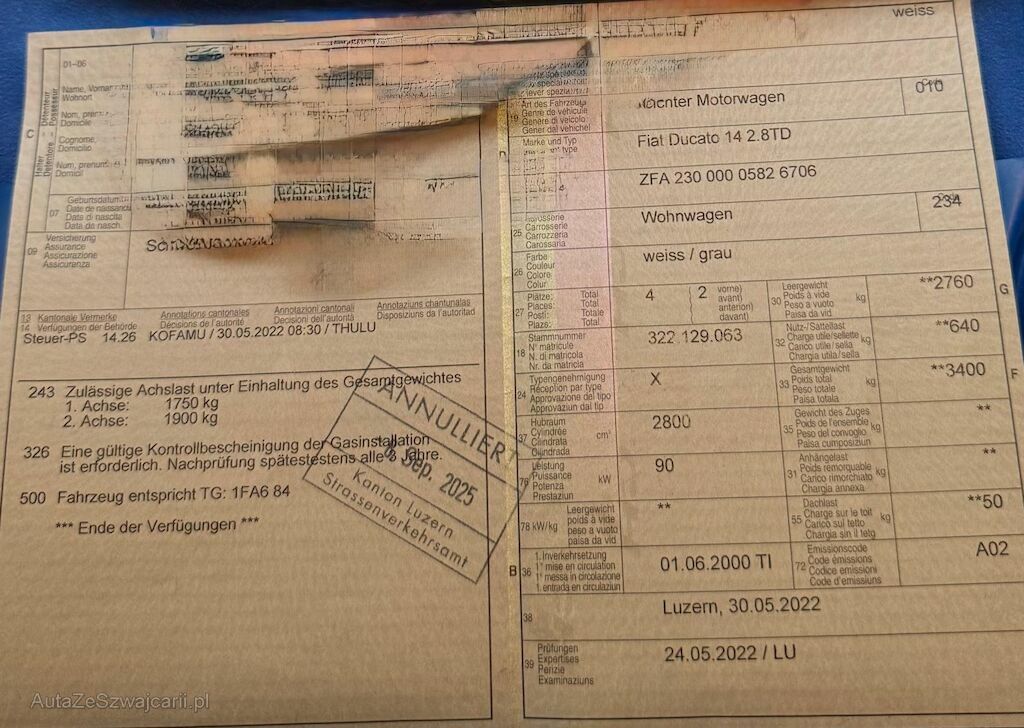 weiss
01-06
Name,
Wohnort
Nom,
Domicile
Cognome,
Domicilio
Num,
Domicil
C
Halter
Détenteur
07
Geburtsdatum
Date de naissance
Data di nascita
Data da nasch.
09
Versicherung
Assurance
Assicurazione
Assicuranza
13 Kantonale Vermerke
14 Verfügungen der Behörde
Annotations cantonales
Décisions de l'autorité
Annotazioni cantonali
Decisioni dell'autorità
Annotaziuns chantunalas
Disposiziuns da l'autoritad
Steuer-PS 14.26 KOFAMU / 30.05.2022 08:30 / THULU
243 Zulässige Achslast unter Einhaltung des Gesamtgewichtes
1. Achse: 1750 kg
2. Achse: 1900 kg
326 Eine gültige Kontrollbescheinigung der Gasinstallation
ist erforderlich. Nachprüfung spätestestens alle 3 Jahre.
500 Fahrzeug entspricht TG: 1FA6 84
*** Ende der Verfügungen ***
ANNULLIERT
Sep. 2025
Kanton Luzern
Strassenverkehrsamt
19
Art des Fahrzeugs
Genre de véhicule
Genere di veicolo
Gener dal vehichel
Motorwagen
010
D
Marke und Typ
Fiat Ducato 14 2.8TD
ZFA 230 000 0582 6706
25
Carrosserie
Carrozzeria
Carossaria
Wohnwagen
234
26
Farbe
Couleur
Colore
Colur
weiss / grau
27
Plätze: Total
Places: Total
Posti: Totale
Plazs: Total
4
2
vorne)
avant)
anteriori)
davant)
30
Leergewicht
Poids à vide
Peso a vuoto
Paisa da vid
kg
**2760
G
18
Stammnummer
N° matricule
N. di matricola
Nr. da matricla
322.129.063
32
Nutz-/Sattellast
Charge utile/sellette
Carico utile/sella
Chargia utila/sella
kg
**640
24
Typengenehmigung
Réception par type
Approvazione del tipo
Approvaziun dal tip
X
33
Gesamtgewicht
Poids total
Peso totale
Paisa totala
kg
**3400
F
37
Hubraum
Cylindrée
Cilindrata
Cilindrada
cm³
2800
35
Gewicht des Zuges
Poids de l'ensemble
Peso del convoglio
Paisa cumposiziun
kg
**
76
Leistung
Puissance
Potenza
Prestaziun
kW
90
31
Anhängelast
Poids remorquable
Carico rimorchiato
Chargia annexa
kg
**
78 kW/kg
Leergewicht
poids à vide
peso a vuoto
paisa da vid
**
55
Dachlast
Charge sur le toit
Carico sul tetto
Chargia sin il tetg
kg
**50
B
36
1. Inverkehrsetzung
1re mise en circulation
1a messa in circolazione
1. entrada en circulaziun
01.06.2000 TI
72
Emissionscode
Code émissions
Codice emissioni
Code d'emissiuns
A02
38
Luzern, 30.05.2022
39
Prüfungen
Expertises
Perizie
Examinaziuns
24.05.2022 / LU
AutaZeSzwajcarii.pl